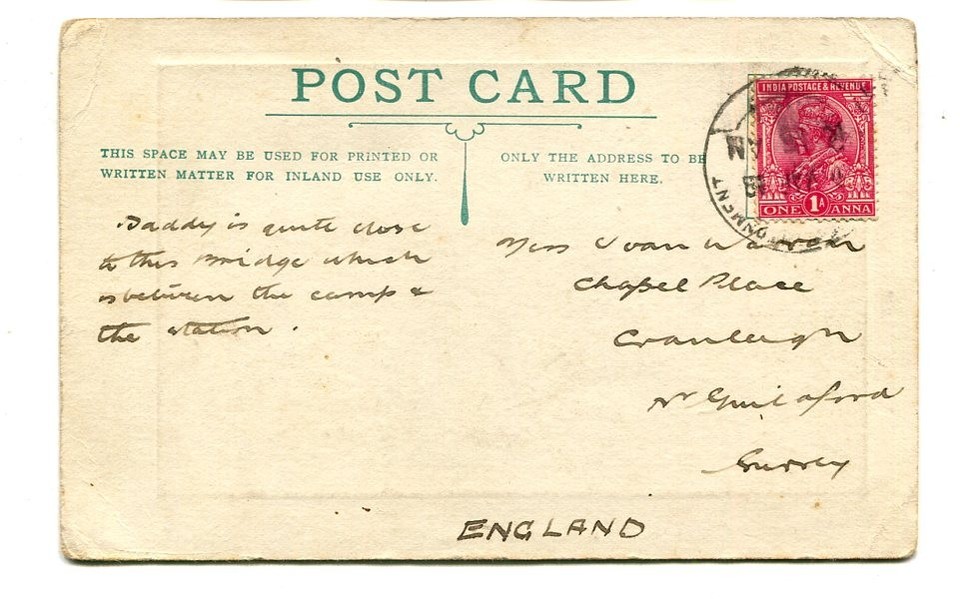 POST CARD
THIS SPACE MAY BE USED FOR PRINTED OR
WRITTEN MATTER FOR INLAND USE ONLY.
ONLY THE ADDRESS TO BE
WRITTEN HERE.
INDIA POSTAGE & REVENUE
ONE 1A ANNA
Daddy is quite close
to this Bridge which
is between the camp &
the station.
Miss Joan Warren
Chapel Place
Cranleigh
Nr Guildford
Surrey
ENGLAND